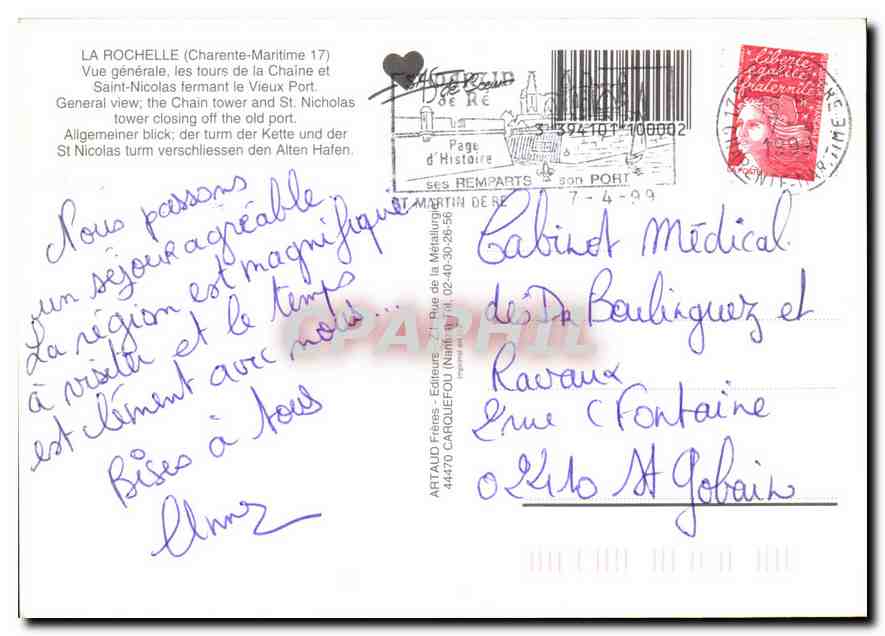 LA ROCHELLE (Charente-Maritime 17)
Vue générale, les tours de la Chaîne et
Saint-Nicolas fermant le Vieux Port.
General view; the Chain tower and St. Nicholas
tower closing off the old port.
Allgemeiner blick; der turm der Kette und der
St Nicolas turm verschliessen den Alten Hafen.
Nous passons
un séjour agréable
La région est magnifique
à visiter et le temps
est clément avec nous...
Bises à tous
Anne
DE RÉ
Page
d'Histoire
ses REMPARTS son PORT
ST MARTIN DE RE 7-4-99
3 394101 100002
liberté
égalité
fraternité
LA POSTE
ARTAUD Frères - Editeurs - Z.I. Rue de la Métallurgie
44470 CARQUEFOU (Nantes) Tél. 02-40-30-26-56
CPAPHIL
Cabinet Médical
des Dr Boulinguez et
Ravaux
2 rue C Fontaine
02410 St Gobain